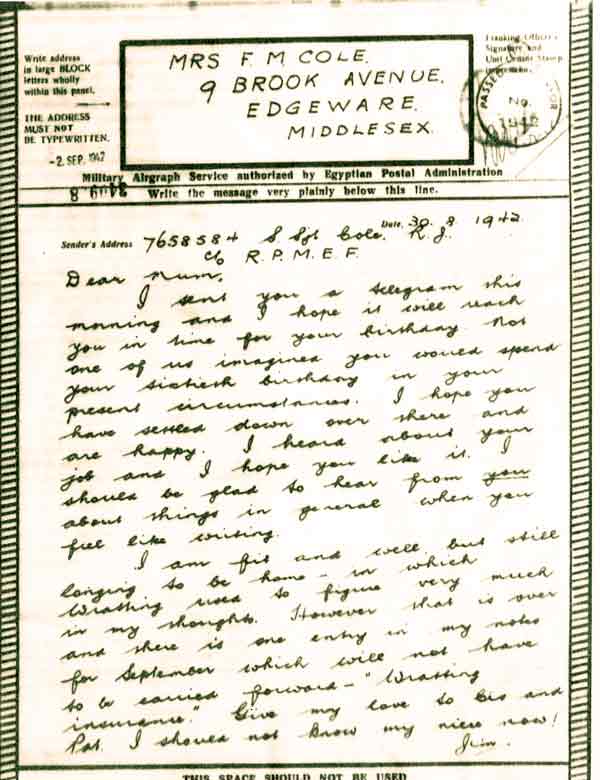 Write address
in large BLOCK
letters wholly
within this panel.
THE ADDRESS
MUST NOT
BE TYPEWRITTEN.
-2 SEP. 1942
MRS F. M. COLE.
9 BROOK AVENUE.
EDGEWARE.
MIDDLESEX.
Franking Officer's
Signature and
Unit Stamp
PASSED
No.
Military Airgraph Service authorized by Egyptian Postal Administration
Write the message very plainly below this line.
Date. 30. 8. 1942
Sender's Address 7658584 S Sjt Cole. R. J.
c/o R. P. M. E. F.
Dear Mum,
I sent you a telegram this
morning and I hope it will reach
you in time for your birthday. Not
one of us imagined you would spend
your sixtieth birthday in your
present circumstances. I hope you
have settled down over there and
are happy. I heard about your
job and I hope you like it. I
should be glad to hear from you
about things in general when you
feel like writing.
I am fit and well but still
longing to be home - in which
Wratting used to figure very much
in my thoughts. However that is over
and there is one entry in my notes
for September which will not have
to be carried forward - "Wratting
insurance." Give my love to Cis and
Pat. I should not know my niece now!
Jim.
THIS SPACE SHOULD NOT BE USED